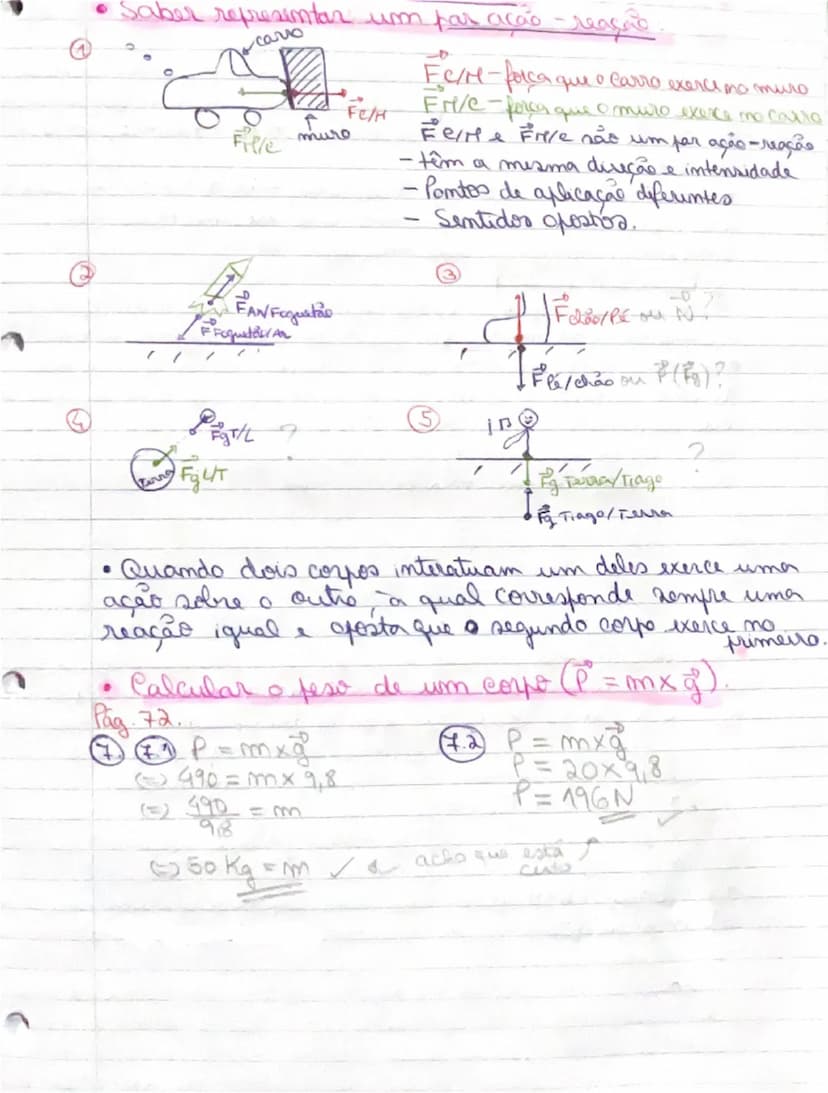 • Saber representar um par ação-reação.
① carro
F⃗C/M - força que o carro exerce no muro
F⃗C/M
F⃗M/C - força que o muro exerce no carro
F⃗M/C
muro
F⃗C/M e F⃗M/C são um par ação-reação
- têm a mesma direção e intensidade
- Pontos de aplicação diferentes
- Sentidos opostos.
②
F⃗AR/Foguetão
F⃗Foguetão/AR
③
F⃗chão/Pé ou N⃗?
F⃗Pé/chão ou P⃗(F⃗g)?
④
F⃗gT/L ?
Terra F⃗gL/T
⑤
?
F⃗g Terra/Tiago
F⃗g Tiago/Terra
• Quando dois corpos interatuam um deles exerce uma
ação sobre o outro, à qual corresponde sempre uma
reação igual e oposta que o segundo corpo exerce no
primeiro.
• Calcular o peso de um corpo (P⃗ = m x g⃗).
Pág. 72..
⑦. 7.1 P = m x g⃗
(=) 490 = m x 9,8
(=) 490/9,8 = m
(=) 50 Kg = m ✓ acho que está certo
7.2 P = m x g⃗
P = 20 x 9,8
P = 196 N ✓